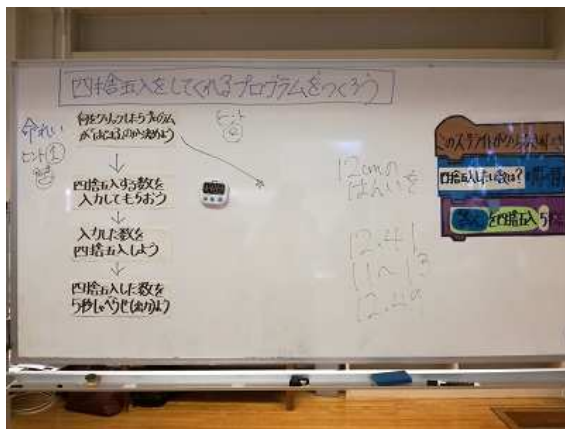 四捨五入をしてくれるプログラムをつくろう
命れい
ヒント①
何をクリックしたらプログラム
がはじまるのか決めよう
↓
四捨五入する数を
入力してもらおう
↓
入力した数を
四捨五入しよう
↓
四捨五入した数を
5秒しゃべらせ(出力)よう
ヒント
12cmの
はんいを
12.41
このスプライトが
四捨五入したい数は?
を四捨五入
5